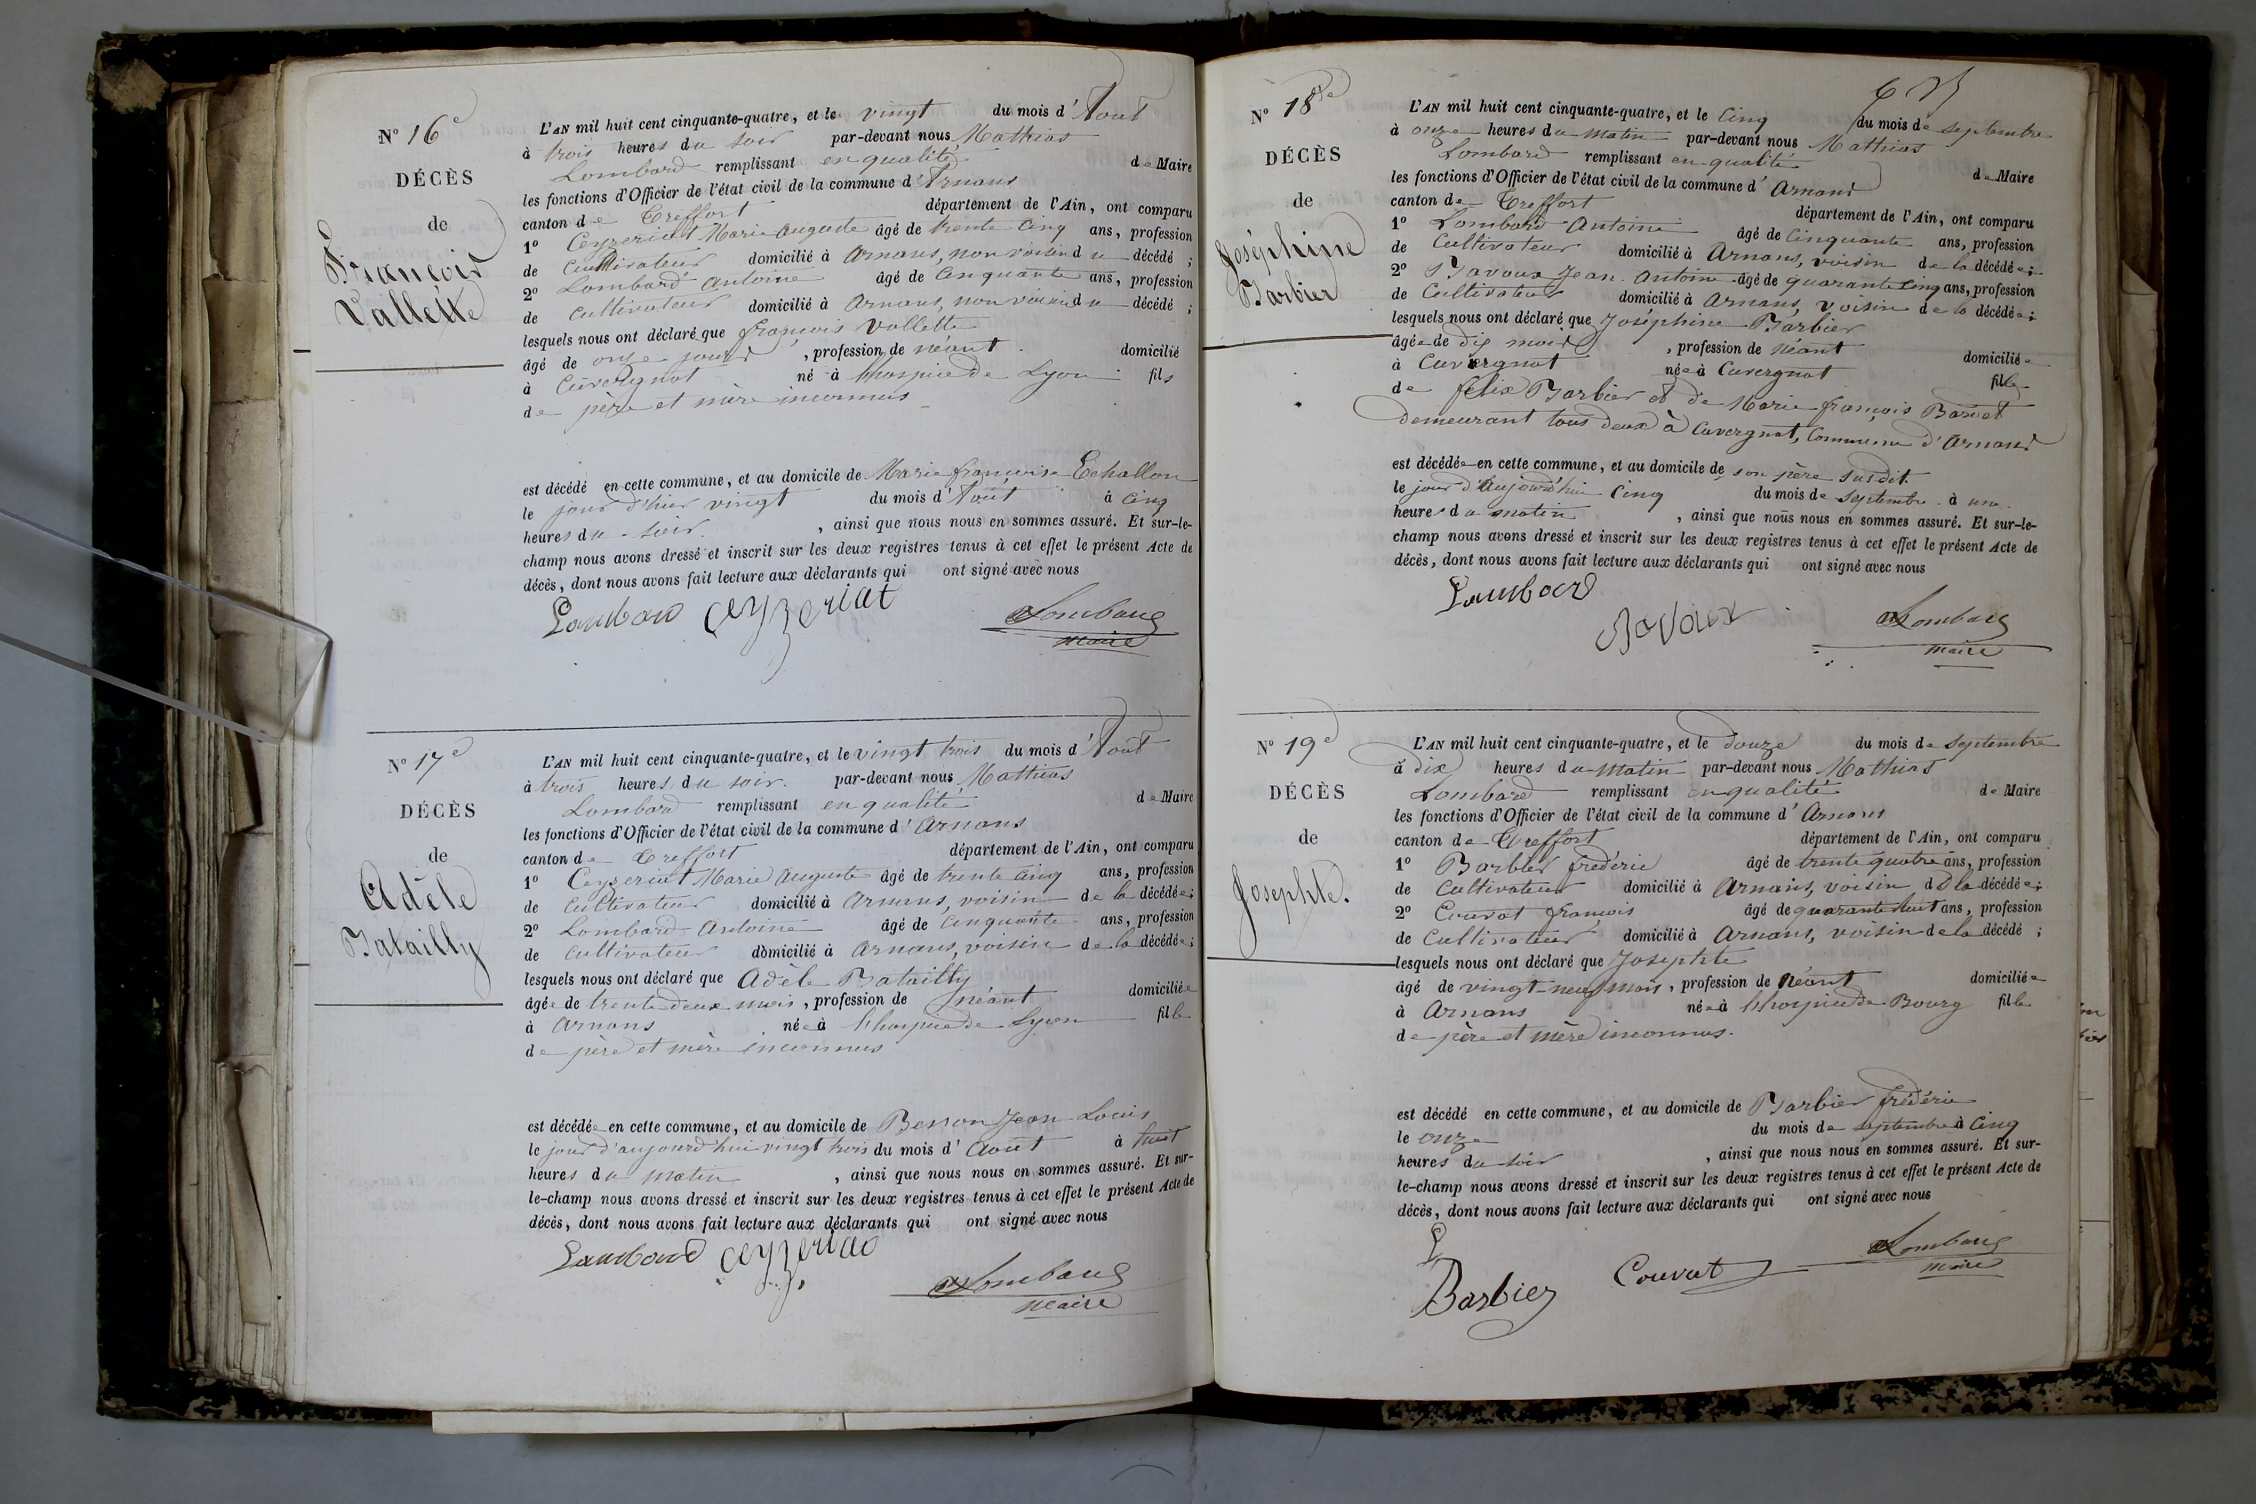 N° 16e
DÉCÈS
de
François
Vallette
L'AN mil huit cent cinquante-quatre, et le vingt du mois d'Aout
à trois heures du soir par-devant nous Mathias
Lombard remplissant en qualité de Maire
les fonctions d'Officier de l'état civil de la commune d'Arnans
canton de Treffort département de l'Ain, ont comparu
1° Ceyzeriat Marie Auguste âgé de trente cinq ans, profession
de Cultivateur domicilié à Arnans, non voisin du décédé ;
2° Lombard Antoine âgé de cinquante ans, profession
de Cultivateur domicilié à Arnans, non voisin du décédé ;
lesquels nous ont déclaré que françois Vallette
âgé de onze jours, profession de néant domicilié
à Cuvergnat né à l'hospice de Lyon fils
de père et mère inconnus
est décédé en cette commune, et au domicile de Marie françoise Echallon
le jour d'hier vingt du mois d'Août à cinq
heures du soir, ainsi que nous nous en sommes assuré. Et sur-le-
champ nous avons dressé et inscrit sur les deux registres tenus à cet effet le présent Acte de
décès, dont nous avons fait lecture aux déclarants qui ont signé avec nous
Lombard Ceyzeriat Lombard
maire
N° 17e
DÉCÈS
de
Adèle
Batailly
L'AN mil huit cent cinquante-quatre, et le vingt trois du mois d'Aout
à trois heures du soir. par-devant nous Mathias
Lombard remplissant en qualité de Maire
les fonctions d'Officier de l'état civil de la commune d'Arnans
canton de Treffort département de l'Ain, ont comparu
1° Ceyzeriat Marie Auguste âgé de trente cinq ans, profession
de Cultivateur domicilié à Arnans, voisin de la décédée ;
2° Lombard Antoine âgé de cinquante ans, profession
de cultivateur domicilié à Arnans, voisin de la décédée ;
lesquels nous ont déclaré que Adèle Batailly
âgée de trente deux mois, profession de néant domiciliée
à Arnans née à l'hospice de Lyon fille
de père et mère inconnus
est décédée en cette commune, et au domicile de Besson Jean Louis
le jour d'aujourd'hui vingt trois du mois d'Aout à huit
heures du matin, ainsi que nous nous en sommes assuré. Et sur-
le-champ nous avons dressé et inscrit sur les deux registres tenus à cet effet le présent Acte de
décès, dont nous avons fait lecture aux déclarants qui ont signé avec nous
Lombard Ceyzeriat
Lombard
maire
N° 18e
DÉCÈS
de
Joséphine
Barbier
L'AN mil huit cent cinquante-quatre, et le Cinq du mois de septembre
à onze heures du matin par-devant nous Mathias
Lombard remplissant en qualité de Maire
les fonctions d'Officier de l'état civil de la commune d'Arnans
canton de Treffort département de l'Ain, ont comparu
1° Lombard Antoine âgé de Cinquante ans, profession
de Cultivateur domicilié à Arnans, voisin de la décédée ;
2° Bavoux Jean Antoine âgé de quarante cinq ans, profession
de Cultivateur domicilié à Arnans, voisin de la décédée ;
lesquels nous ont déclaré que Joséphine Barbier
âgée de dix mois, profession de Néant domiciliée
à Cuvergnat née à Cuvergnat fille
de felix Barbier et de Marie françois Barnet
demeurant tous deux à Cuvergnat, Commune d'Arnans
est décédée en cette commune, et au domicile de son père susdit.
le jour d'aujourd'hui cinq du mois de septembre à une
heures du matin, ainsi que nous nous en sommes assuré. Et sur-le-
champ nous avons dressé et inscrit sur les deux registres tenus à cet effet le présent Acte de
décès, dont nous avons fait lecture aux déclarants qui ont signé avec nous
Lombard
Bavoux Lombard
maire
N° 19e
DÉCÈS
de
Josephte.
L'AN mil huit cent cinquante-quatre, et le douze du mois de septembre
à dix heures du matin par-devant nous Mathias
Lombard remplissant en qualité de Maire
les fonctions d'Officier de l'état civil de la commune d'Arnans
canton de Treffort département de l'Ain, ont comparu
1° Barbier frédéric âgé de trente quatre ans, profession
de Cultivateur domicilié à Arnans, voisin de la décédée ;
2° Couvat françois âgé de quarante huit ans, profession
de Cultivateur domicilié à Arnans, voisin de la décédé ;
lesquels nous ont déclaré que Josephte
âgé de vingt-neuf mois, profession de Néant domiciliée
à Arnans née à l'hospice de Bourg fille
de père et mère inconnus.
est décédé en cette commune, et au domicile de Barbier frédéric
le onze du mois de septembre à Cinq
heures du soir, ainsi que nous nous en sommes assuré. Et sur-
le-champ nous avons dressé et inscrit sur les deux registres tenus à cet effet le présent Acte de
décès, dont nous avons fait lecture aux déclarants qui ont signé avec nous
Barbier Couvat Lombard
maire